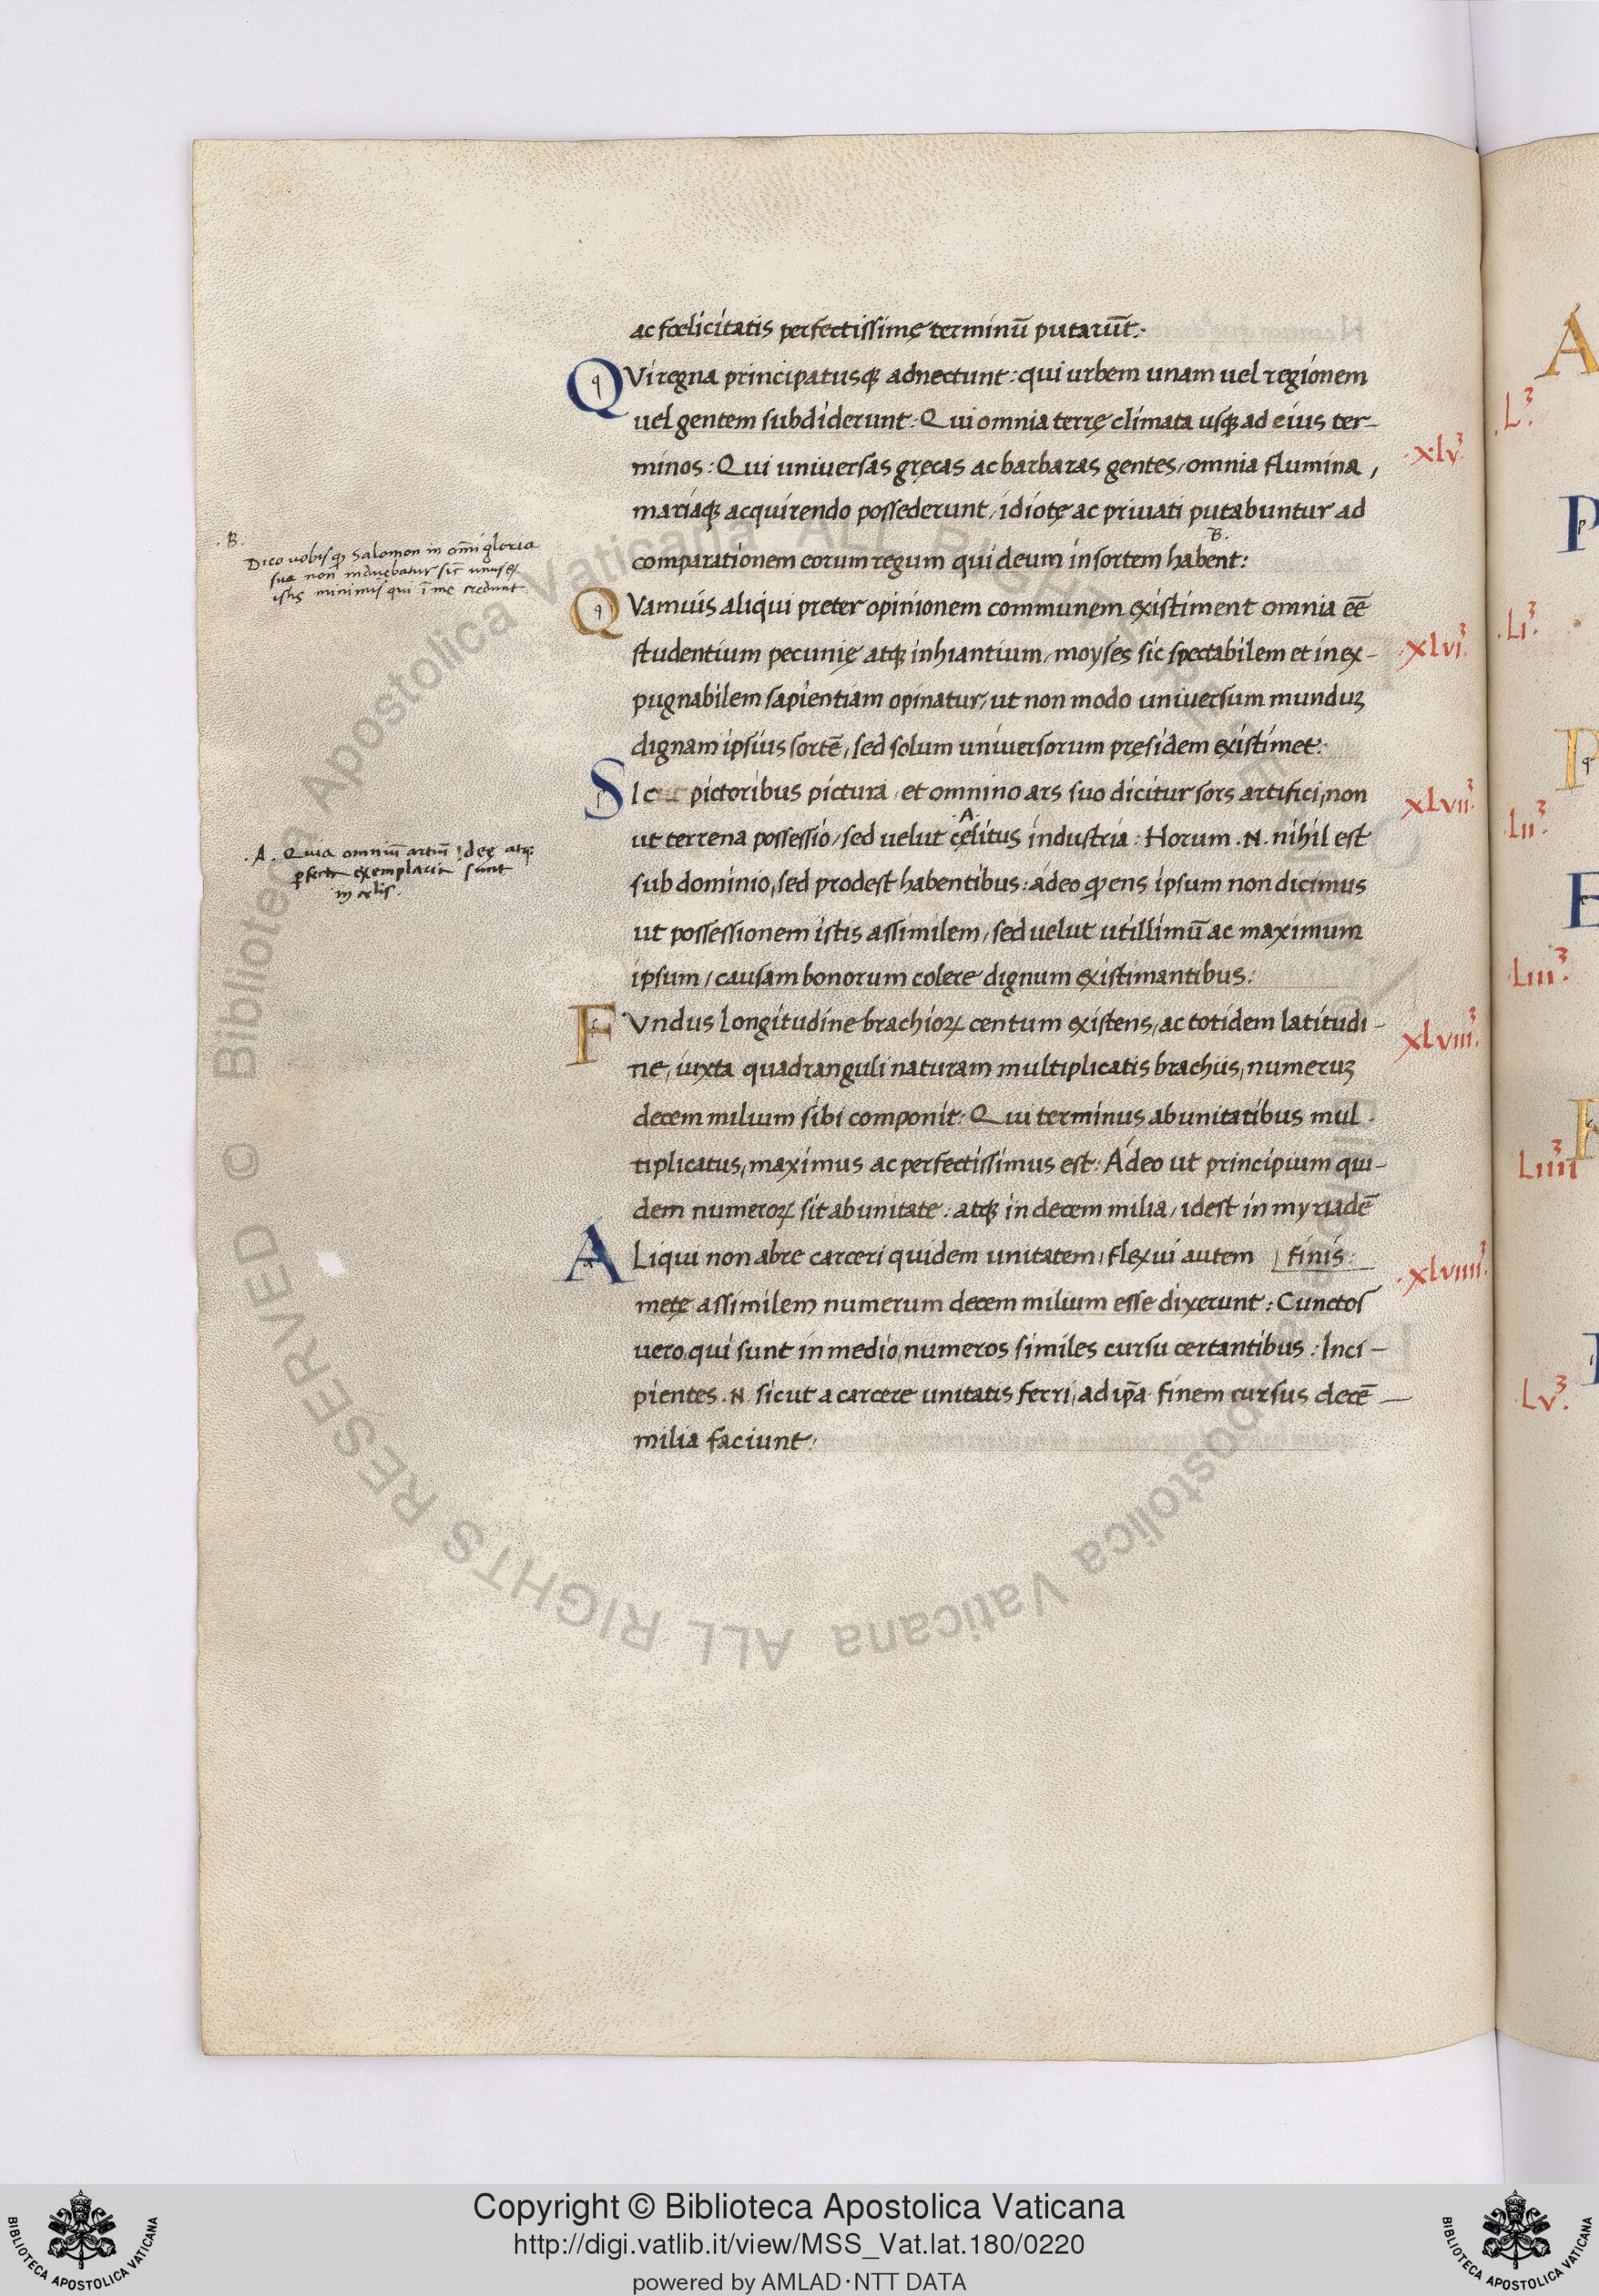 ac fœlicitatis perfectissimę terminū putarūt:
QVi regna principatusqꝫ adnectunt: qui urbem unam uel regionem
uel gentem subdiderunt: Qui omnia terrę climata usqꝫ ad eius ter-
minos: Qui uniuersas gręcas ac barbaras gentes, omnia flumina,
mariaqꝫ acquirendo possederunt, idiotę ac priuati putabuntur ad
.B.
comparationem eorum regum qui deum in sortem habent:
QVamuis aliqui preter opinionem communem existiment omnia eē
studentium pecunię atqꝫ inhiantium, moyses sic spectabilem et inex-
pugnabilem sapientiam opinatur, ut non modo uniuersum munduꝫ
dignam ipsius sortē, sed solum uniuersorum pręsidem existimet:
SIcut pictoribus pictura, et omnino ars suo dicitur sors artifici, non
.A.
ut terrena possessio, sed uelut cęlitus industria: Horum .N. nihil est
sub dominio, sed prodest habentibus: adeo ꝙ ens ipsum non dicimus
ut possessionem istis assimilem, sed uelut utillimū ac maximum
ipsum, causam bonorum colere dignum existimantibus:
FVndus longitudine brachioꝝ centum existens, ac totidem latitudi-
ne, iuxta quadranguli naturam multiplicatis brachiis, numeruꝫ
decem milium sibi componit: Qui terminus ab unitatibus mul
tiplicatus, maximus ac perfectissimus est: Adeo ut principium qui-
dem numeroꝝ sit ab unitate: atqꝫ in decem milia, idest in myriadē
finis:
ALiqui non ab re carceri quidem unitatem, flexui autem
metę assimilem numerum decem milium esse dixerunt: Cunctos
uero, qui sunt in medio, numeros similes cursu certantibus: Inci-
pientes .N. sicut a carcere unitatis ferri, ad ip̄a finem cursus decē
milia faciunt:
.B.
Dico uobis ꝙ Salomon in om̄i gloria
sua non induebatur sic̄ unus ex
istis minimis qui ī me credunt
.A. Quia omniū artiū idee atqꝫ
ꝑfecta exemplaria sunt
in celis.
.xlv³
xlvi³.
xLvii³
xLviii³.
.xLviiii³.
.L³.
.Li³.
.Lii³.
.Liii³.
Liiii³
.Lv³.
A
P
P
E
Copyright © Biblioteca Apostolica Vaticana
http://digi.vatlib.it/view/MSS_Vat.lat.180/0220
powered by AMLAD·NTT DATA
BIBLIOTECA APOSTOLICA VATICANA
BIBLIOTECA APOSTOLICA VATICANA
© Biblioteca Apostolica Vaticana ALL RIGHTS RESERVED